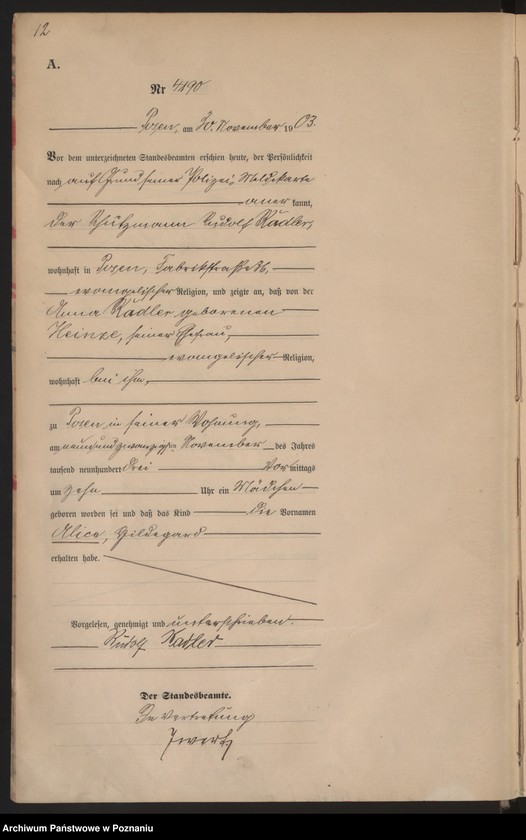 12
A.
Nr 4190
Posen, am 30. November 1903.
Vor dem unterzeichneten Standesbeamten erschien heute, der Persönlichkeit
nach auf Grund seiner Polizei-Meldekarte
anerkannt,
der Schutzmann Rudolf Radler,
wohnhaft in Posen, Fabrikstraße
evangelischer Religion, und zeigte an, daß von der
Anna Radler geborenen
Heinze, seiner Ehefrau,
evangelischer Religion,
wohnhaft bei ihm,
zu Posen in seiner Wohnung,
am neunundzwanzigsten November des Jahres
tausend neunhundert drei Vormittags
um zehn Uhr ein Mädchen
geboren worden sei und daß das Kind die Vornamen
Alice, Hildegard
erhalten habe.
Vorgelesen, genehmigt und unterschrieben.
Rudolf Radler
Der Standesbeamte.
In Vertretung
Archiwum Państwowe w Poznaniu